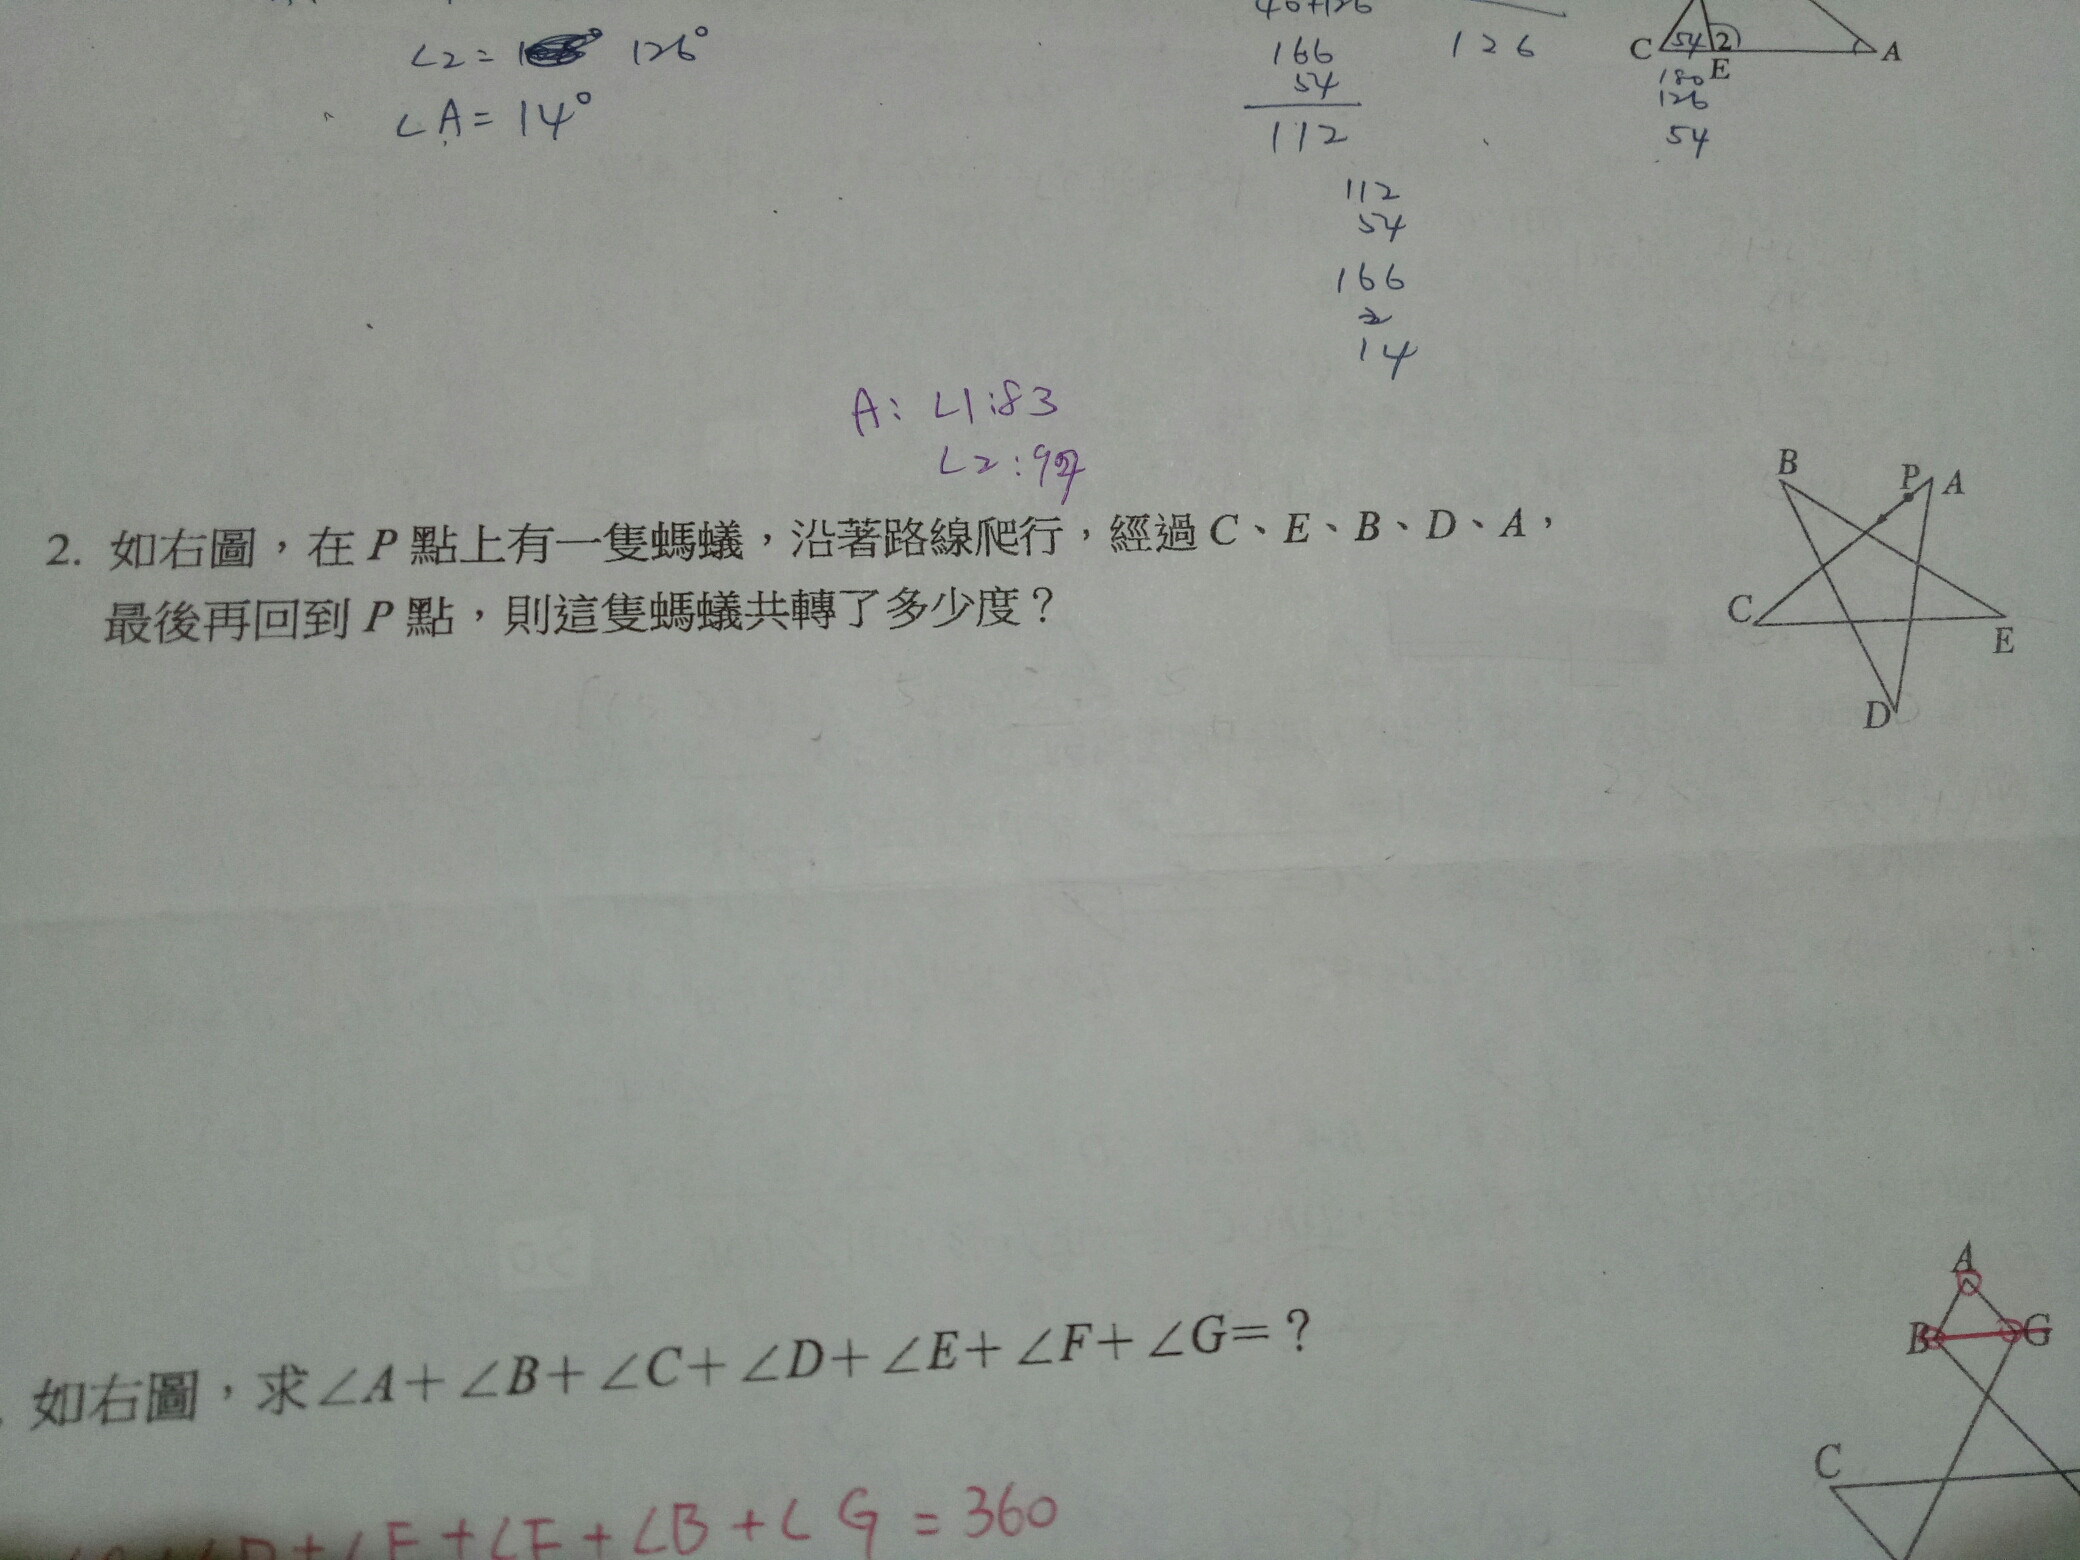 ∠2= 126°
∠A= 14°
166
54
112
126
C 54 2 A
E
180
126
54
112
54
166
2
14
A: ∠1:83
∠2:97
2. 如右圖，在 P 點上有一隻螞蟻，沿著路線爬行，經過 C、E、B、D、A，
最後再回到 P 點，則這隻螞蟻共轉了多少度？
B P A
C
E
D
如右圖，求∠A＋∠B＋∠C＋∠D＋∠E＋∠F＋∠G=？
A
B G
C
+∠F+∠B+∠G=360